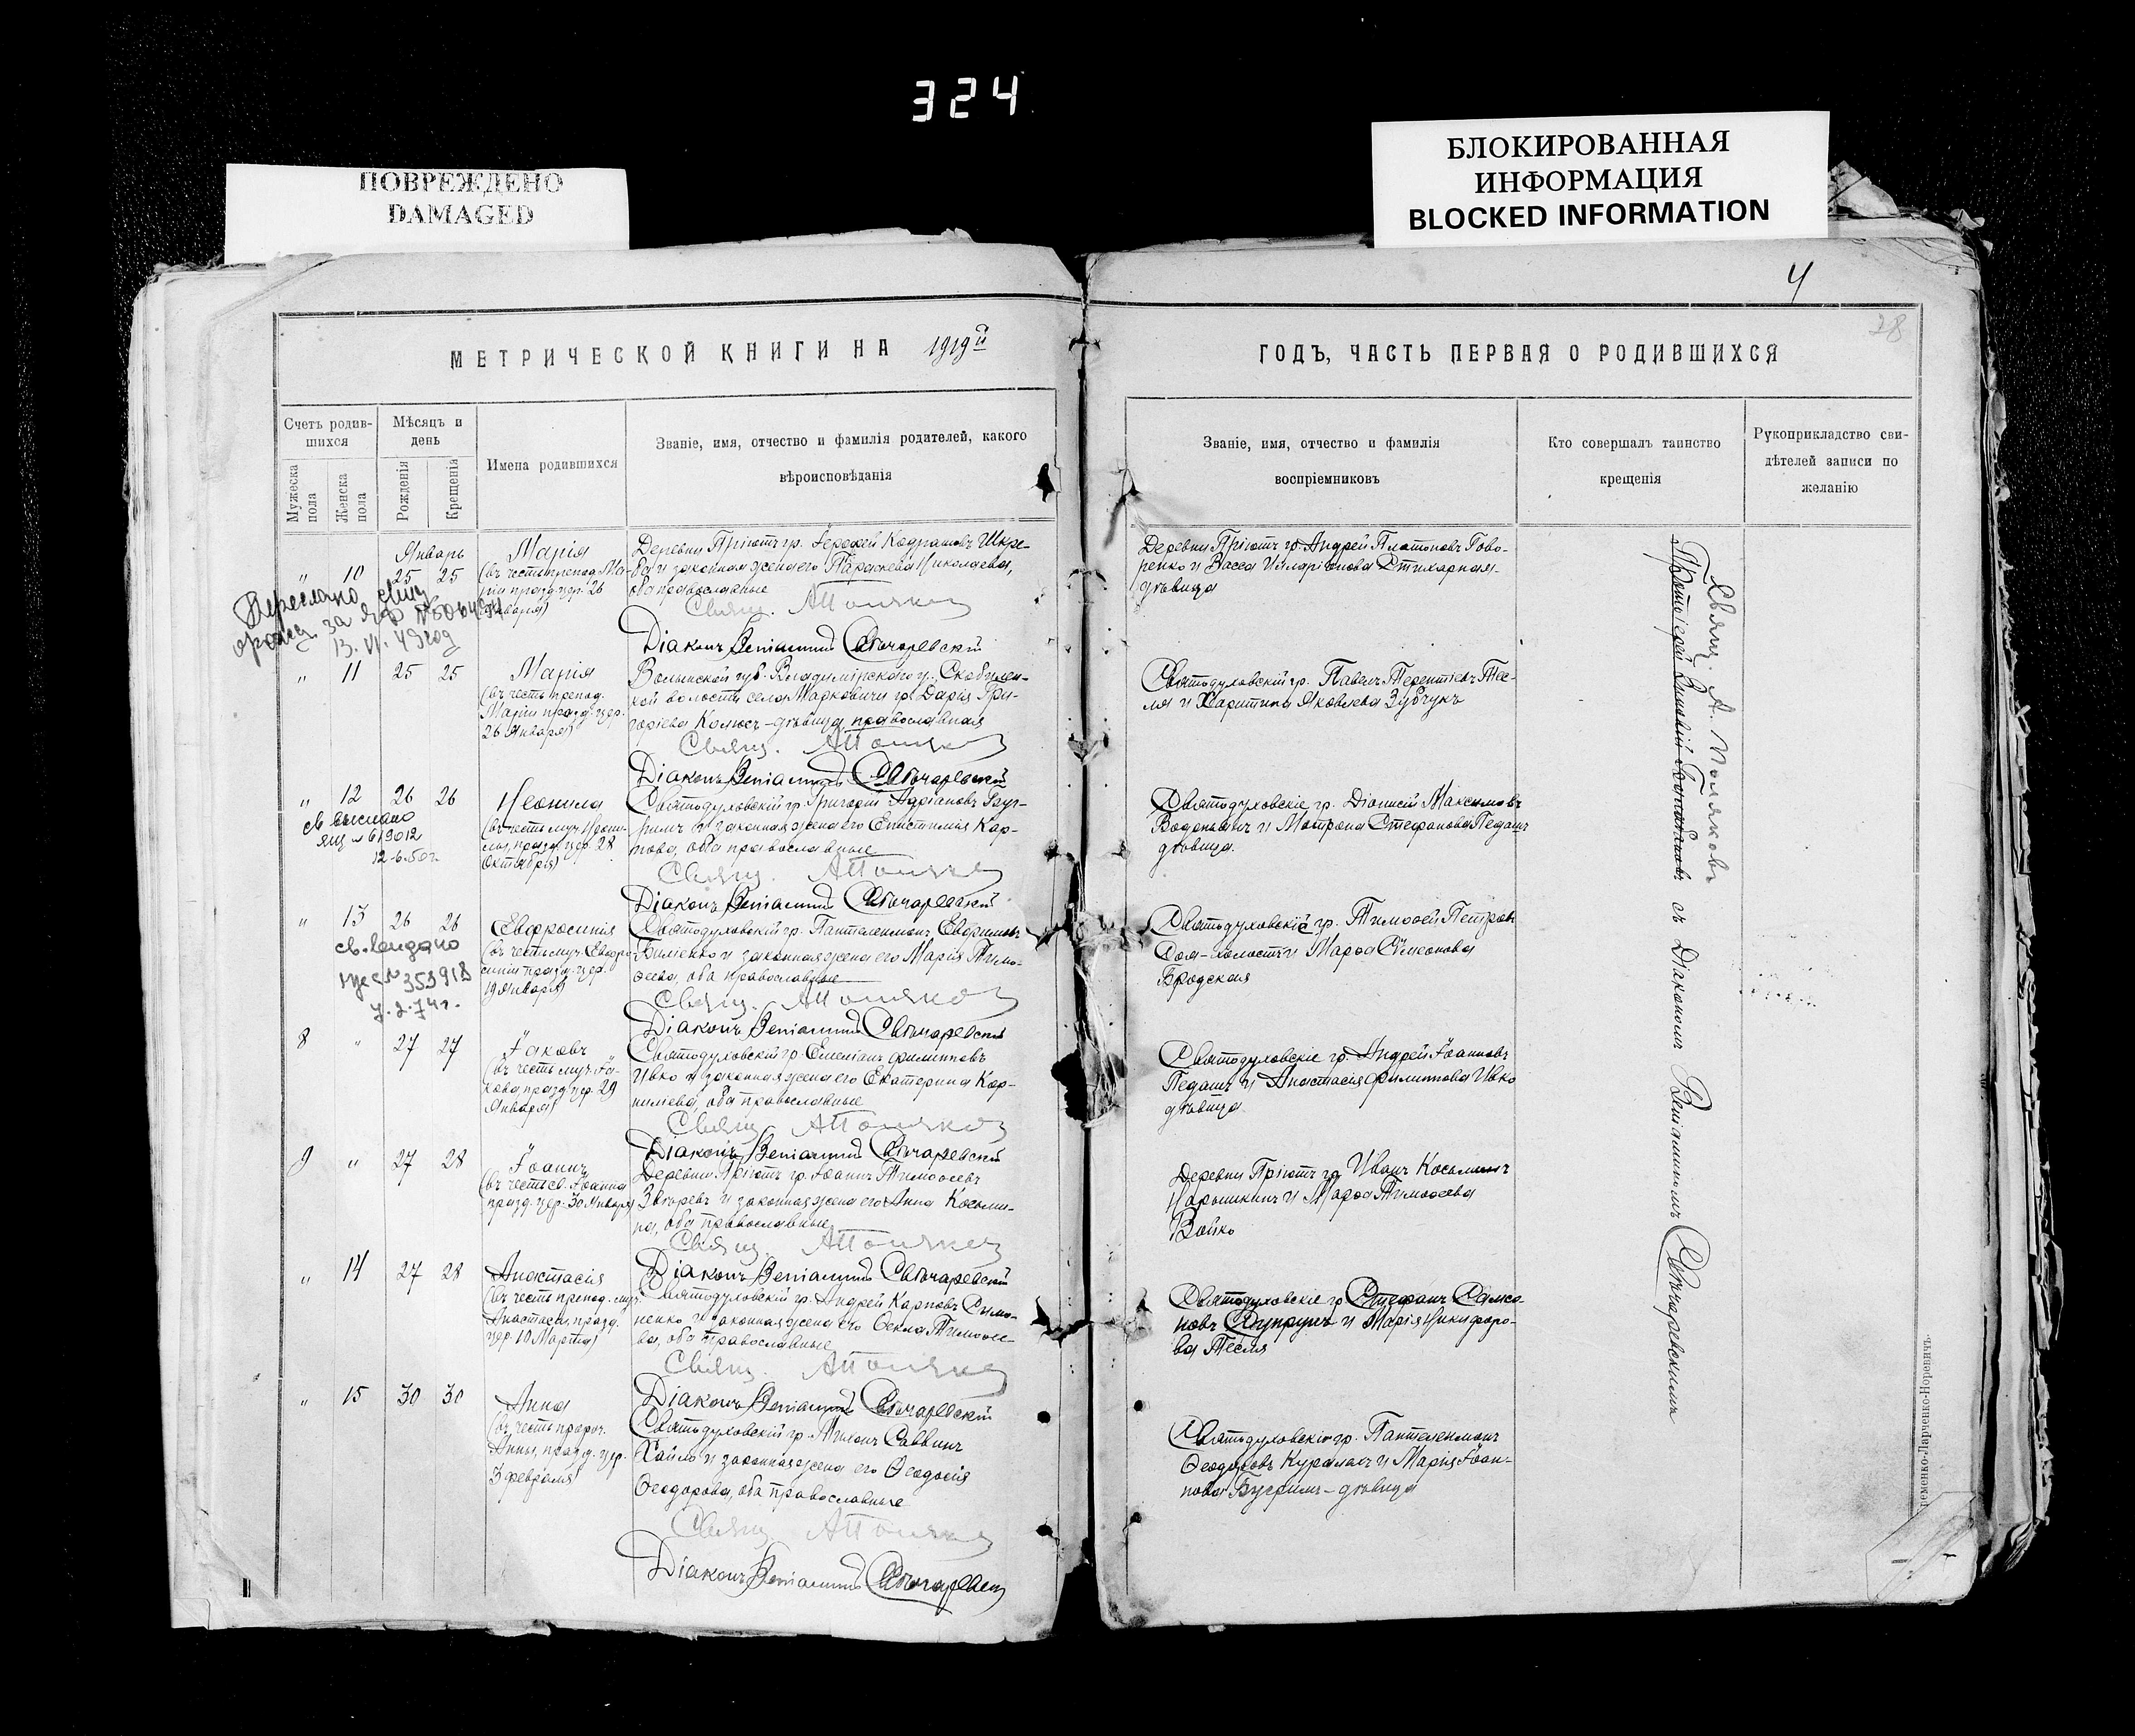 324
ПОВРЕЖДЕНО
DAMAGED
БЛОКИРОВАННАЯ
ИНФОРМАЦИЯ
BLOCKED INFORMATION
4
28
МЕТРИЧЕСКОЙ КНИГИ НА 1919й
ГОДЪ, ЧАСТЬ ПЕРВАЯ О РОДИВШИХСЯ
Счетъ родив-
шихся
Мужеска пола
Женска пола
Мѣсяцъ и
день
Рожденія
Крещенія
Имена родившихся
Званіе, имя, отчество и фамилія родителей, какого
вѣроисповѣданія
Званіе, имя, отчество и фамилія
воспріемниковъ
Кто совершалъ таинство
крещенія
Рукоприкладство сви-
дѣтелей записи по
желанію
Январь
" 10 25 25
Марія
(въ честь препод. Ма-
ріи празд. цер. 26
Января)
Деревни Пріютъ гр. Іероѳей Кодратовъ Шкре-
ба и законная жена его Параскева Николаева,
оба православные
Свящ. А Поляков
Діаконъ Веніаминъ Свѣчаревскій
Деревни Пріютъ гр. Андрей Платоновъ Гово-
ренко и Васса Иларіонова Стихарная-
дѣвица
13. VI. 49 год
" 11 25 25
Марія
(въ честь препод.
Маріи празд. цер.
26 Января)
Волынской губ. Владимірского у., Скобелен-
кой волости села Марковичи гр. Дарія Гри-
горіева Колюсъ-дѣвица, православная
Свящ. А Поляков
Діаконъ Веніаминъ Свѣчаревскій
Святодуховскій гр. Павелъ Терентіевъ Тес-
ля и Харитина Яковлева Зубчукъ
" 12 26 26
св выслано
ящ № 619012
12-6-50г.
Неонила
(въ честь муч. Неони-
лы, празд. цер. 28
Октября)
Святодуховскій гр. Григорій Адріановъ
и законная жена его Епистимія Кар-
пова, оба православные
Свящ. А Поляков
Діаконъ Веніаминъ Свѣчаревскій
Святодуховскіе гр. Діонисій Максимовъ
и Матрона Стефанова Педашъ
дѣвица.
" 13 26 26
св. выдано
№ 353918
7.2.74г.
Евфросинія
(въ честь муч. Евфро-
синіи празд. цер.
19 Января)
Святодуховскій гр. Пантелеимонъ Евфимовъ
Биліенко и законная жена его Марія Тимо-
ѳеева, оба православные
Свящ. А Поляков
Діаконъ Веніаминъ Свѣчаревскій
Святодуховскій гр. Тимоѳей Петровъ
Доля-холостъ и Марѳа Симеонова
Бродская
8 " 27 27
Іаковъ
(въ честь муч. Іа-
кова, празд. цер. 29
Января)
Святодуховскій гр. Емеліанъ Филипповъ
Ивко и законная жена его Екатерина Кор-
ниліева, оба православные
Свящ. А Поляков
Діаконъ Веніаминъ Свѣчаревскій
Святодуховскіе гр. Андрей Іоанновъ
Педашъ и Анастасія Филиппова Ивко
дѣвица.
9 " 27 28
Іоаннъ
(въ честь св. Іоанна
празд. цер. 30 Января)
Деревни Пріютъ гр. Іоаннъ Тимоѳеевъ
Звѣревъ и законная жена его Анна Косьми-
на, оба православные
Свящ. А Поляков
Діаконъ Веніаминъ Свѣчаревскій
Деревни Пріютъ гр. Иванъ Косьминъ
Нарышкинъ и Марѳа Тимоѳеева
Бойко
" 14 27 28
Анастасія
(въ честь препод. муч.
Анастасіи, празд.
цер. 10 Марта)
Святодуховскій гр. Андрей Карповъ Симо-
ненко и законная жена его Ѳекла Тимоѳее-
ва, оба православные
Свящ. А Поляков
Діаконъ Веніаминъ Свѣчаревскій
Святодуховскіе гр Стефанъ Самсо-
новъ Супрунъ и Марія Никифоро-
ва Тесля
" 15 30 30
Анна
(въ честь пророч.
Анны, празд. цер.
3 февраля)
Святодуховскій гр. Тихонъ Саввинъ
Хайло и законная жена его Ѳеодосія
Ѳеодорова, оба православные
Свящ. А Поляков
Діаконъ Веніаминъ Свѣчаревскій
Святодуховскіе гр. Пантелеимонъ
Ѳеодоровъ Куралехъ и Марія Іоан-
нова Бугримъ-дѣвица
Свящ. А. Поляковъ
Протоіерей съ Діакономъ Веніаминомъ Свѣчаревскимъ